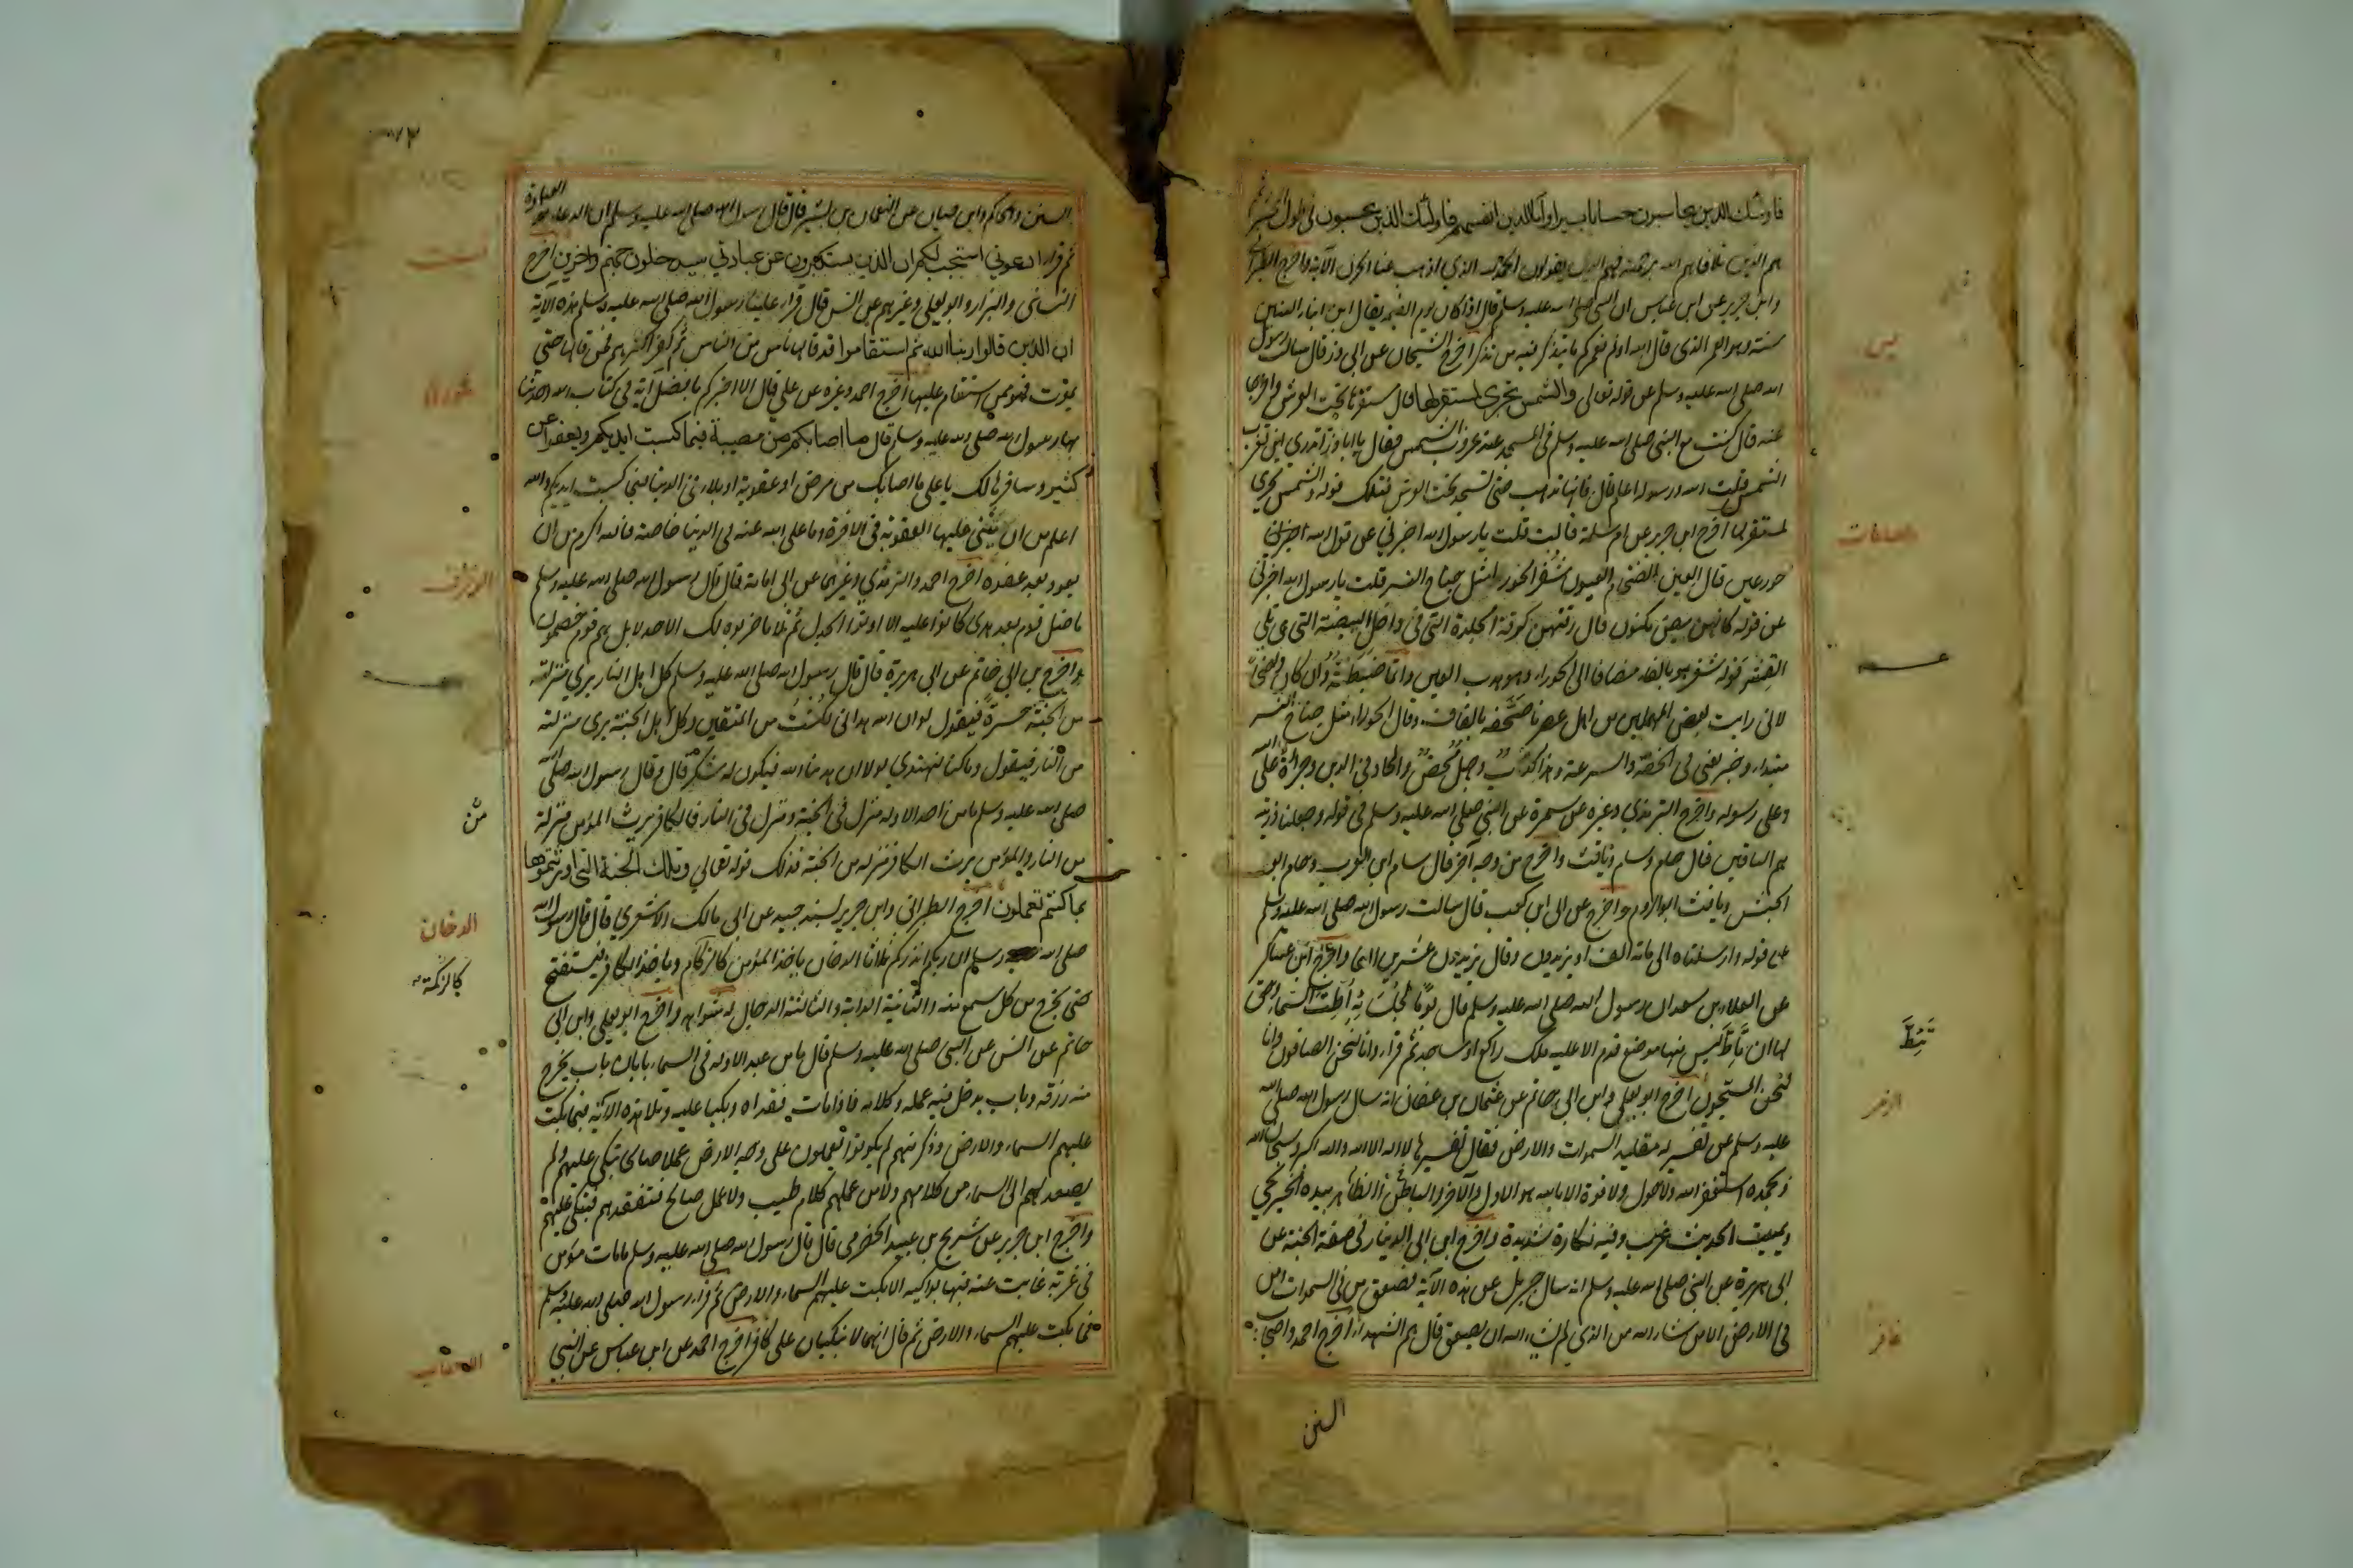 فاولئك الذين يحاسبون حسابا يسيرا واما الذين ظلموا انفسهم فاولئك الذين يحبسون في طول المحشر ثم
هم الذين تلافاهم الله برحمته فهم الذين يقولون الحمد لله الذي اذهب عنا الحزن الآية واخرج الطبراني
وابن جرير عن ابن عباس ان النبي صلى الله عليه وسلم قال اذا كان يوم القيمة يقال اين ابناء الستين
سنة وهو العمر الذي قال الله اولم نعمركم ما يتذكر فيه من تذكر اخرج الشيخان عن ابي ذر قال سالت رسول
الله صلى الله عليه وسلم عن قوله تعالى والشمس تجري لمستقر لها قال مستقرها تحت العرش واخرجا
عنه قال كنت مع النبي صلى الله عليه وسلم في المسجد عند غروب الشمس فقال يا ابا ذر اتدري اين تغرب
الشمس قلت الله ورسوله اعلم قال فانها تذهب حتى تسجد تحت العرش فذلك قوله والشمس تجري
لمستقر لها اخرج ابن جرير عن ام سلمة قالت قلت يا رسول الله اخبرني عن قول الله
حور عين قال العين الضخام العيون شفر الحوراء مثل جناح النسر قلت يا رسول الله اخبرني
عن قوله كانهن بيض مكنون قال رقتهن كرقة الجلدة التي في داخل البيضة التي تلي
القشر قوله شفر هو بالفاء مضافا الى الحوراء وهو هدب العين وانما ضبطته وان كان واضحا
لاني رايت بعض المهملين من اهل عصرنا صحفه بالقاف وقال الحوراء مثل جناح النسر
مبتدا وخبر يعني في الخفة والسرعة وهذا كذب وجهل محض والحاد في الدين وجراة على الله
وعلى رسوله واخرج الترمذي وغيره عن سمرة عن النبي صلى الله عليه وسلم في قوله وجعلنا ذريته
هم الباقين قال حام وسام ويافث واخرج من وجه آخر قال سام ابو العرب وحام ابو
الحبش ويافث ابو الروم واخرج عن ابي ابن كعب قال سالت رسول الله صلى الله عليه وسلم
عن قوله وارسلناه الى مائة الف او يزيدون وقال يزيدون عشرين الفا واخرج ابن عساكر
عن العلاء بن سعد ان رسول الله صلى الله عليه وسلم قال يوما لجلسائه اطت السماء وحق
لها ان تأط ليس منها موضع قدم الا عليه ملك راكع او ساجد ثم قرأ وانا لنحن الصافون وانا
لنحن المسبحون اخرج ابو يعلى وابن ابي حاتم عن عثمان بن عفان انه سال رسول الله صلى الله
عليه وسلم عن تفسير له مقاليد السموات والارض فقال تفسيرها لا اله الا الله والله اكبر وسبحان الله
وبحمده استغفر الله ولا حول ولا قوة الا بالله هو الاول والآخر والباطن والظاهر بيده الخير يحيي
ويميت الحديث غريب وفيه نكارة شديدة واخرج ابن ابي الدنيا في صفة الجنة عن
ابي هريرة عن النبي صلى الله عليه وسلم انه سال جبريل عن هذه الآية فصعق من في السموات ومن
في الارض الا من شاء الله من الذي لم يشاء الله ان يصعق قال هم الشهداء اخرج احمد واصحاب
السنن
يس
والصافات
تئط
الزمر
غافر
السنن والحاكم وابن حبان عن النعمان بن بشير قال قال رسول الله صلى الله عليه وسلم ان الدعاء هو العبادة
ثم قرا ادعوني استجب لكم ان الذين يستكبرون عن عبادتي سيدخلون جهنم داخرين اخرج
النسائي والبزار وابو يعلى وغيرهم عن انس قال قرا علينا رسول الله صلى الله عليه وسلم هذه الآية
ان الذين قالوا ربنا الله ثم استقاموا قد قالها ناس من الناس ثم كفر اكثرهم فمن قالها حتى
يموت فهو ممن استقام عليها اخرج احمد وغيره عن علي قال الا اخبركم بافضل آية في كتاب الله وحدثنا
بها رسول الله صلى الله عليه وسلم قال ما اصابكم من مصيبة فبما كسبت ايديكم ويعفو عن
كثير وسافسرها لك يا علي ما اصابك من مرض او عقوبة او بلاء في الدنيا فبما كسبت ايديكم والله
اعلم من ان يثني عليها العقوبة في الآخرة وما عفى الله عنه في الدنيا خاصة فالله اكرم من ان
يعود بعد عفوه اخرج احمد والترمذي وغيرهما عن ابي امامة قال قال رسول الله صلى الله عليه وسلم
ما ضل قوم بعد هدى كانوا عليه الا اوتوا الجدل ثم تلا ما ضربوه لك الا جدلا بل هم قوم خصمون
واخرج بن ابي حاتم عن ابي هريرة قال قال رسول الله صلى الله عليه وسلم كل اهل النار يرى منزلته
من الجنة حسرة فيقول لو ان الله هداني لكنت من المتقين وكل اهل الجنة يرى منزلته
من النار فيقول وما كنا لنهتدي لولا ان هدينا الله فيكون له شكر قال وقال رسول الله صلى الله
صلى الله عليه وسلم ما من احد الا وله منزل في الجنة ومنزل في النار فالكافر يرث المؤمن منزلة
من النار والمؤمن يرث الكافر منزله من الجنة فذلك قوله تعالى وتلك الجنة التي اورثتموها
بما كنتم تعملون اخرج الطبراني وابن جرير بسند جيد عن ابي مالك الاشعري قال قال رسول الله
صلى الله وسلم ان ربكم انذركم ثلاثا الدخان ياخذ المؤمن كالزكام وياخذ الكافر فينتفخ
حتى يخرج من كل مسمع منه والثانية الدابة والثالثة الدجال له شواهد واخرج ابو يعلى وابن ابي
حاتم عن انس عن النبي صلى الله عليه وسلم قال ما من عبد الا وله في السماء بابان باب يخرج
منه رزقه وباب يدخل فيه عمله وكلامه فاذا مات فقداه وبكيا عليه وتلا هذه الآية فما بكت
عليهم السماء والارض وذكر انهم لم يكونوا يعملون على وجه الارض عملا صالحا تبكي عليهم ولم
يصعد لهم الى السماء من كلامهم ولا من عملهم كلام طيب ولا عمل صالح فتفقدهم فتبكي عليهم
واخرج ابن جرير عن شريح بن عبيد الحضرمي قال قال رسول الله صلى الله عليه وسلم ما مات مؤمن
في غربة غابت عنه فيها بواكيه الا بكت عليه السماء والارض ثم قرا رسول الله صلى الله عليه وسلم
فما بكت عليهم السماء والارض ثم قال انهما لا تبكيان على كافر اخرج احمد عن ابن عباس عن النبي
فصلت
شورى
الزخرف
من
الدخان
كالزكمة
الاحقاف